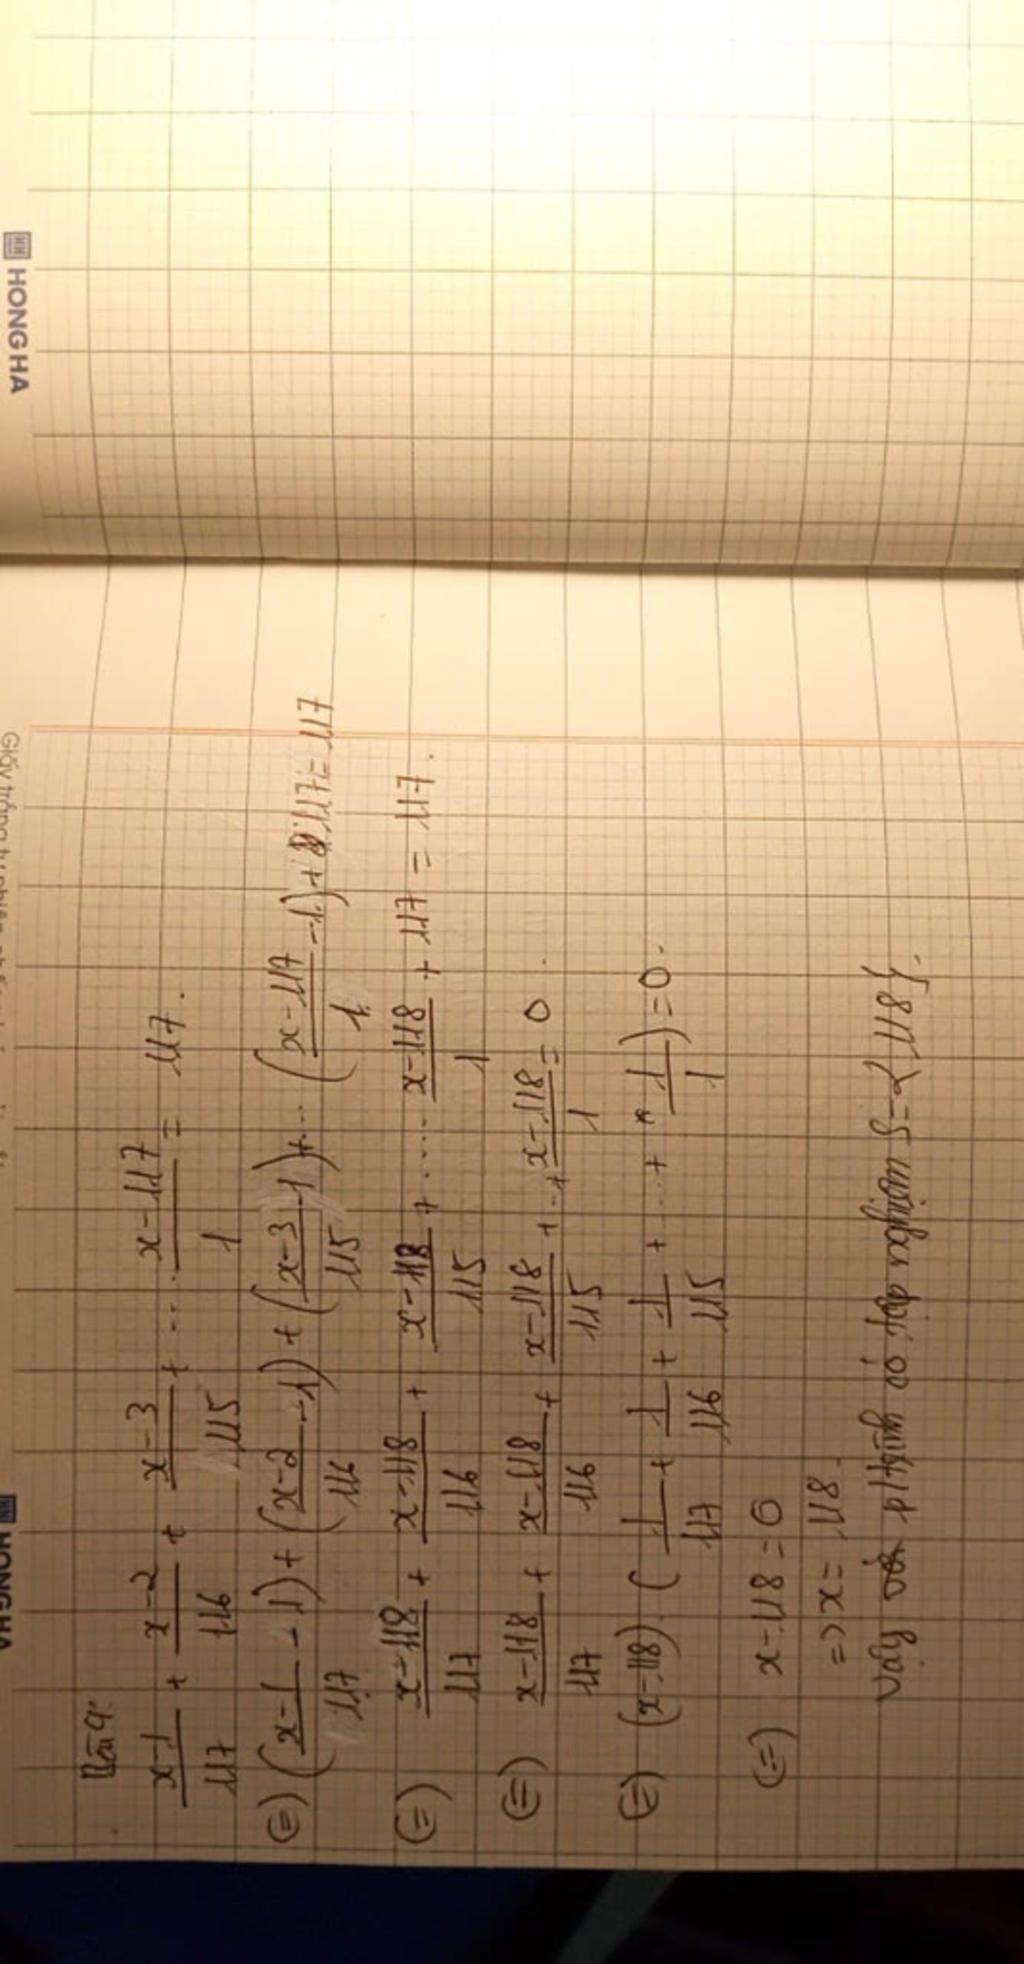 HONG HA
Bài 4:
x-1/117 + x-2/116 + x-3/115 + .... x-117/1 = 117.
(=) (x-1/117 - 1) + (x-2/116 - 1) + (x-3/115 - 1) + ... (x-117/1 - 1) + 117 = 117
(=) x-118/117 + x-118/116 + x-118/115 + .... x-118/1 + 117 = 117.
(=) x-118/117 + x-118/116 + x-118/115 + ..+ x-118/1 = 0.
(=) (x-118) (1/117 + 1/116 + 1/115 + ...+ 1/1) = 0.
(=) x-118 = 0
=> x = 118.
Vậy p/trình có tập nghiệm S = {118}.